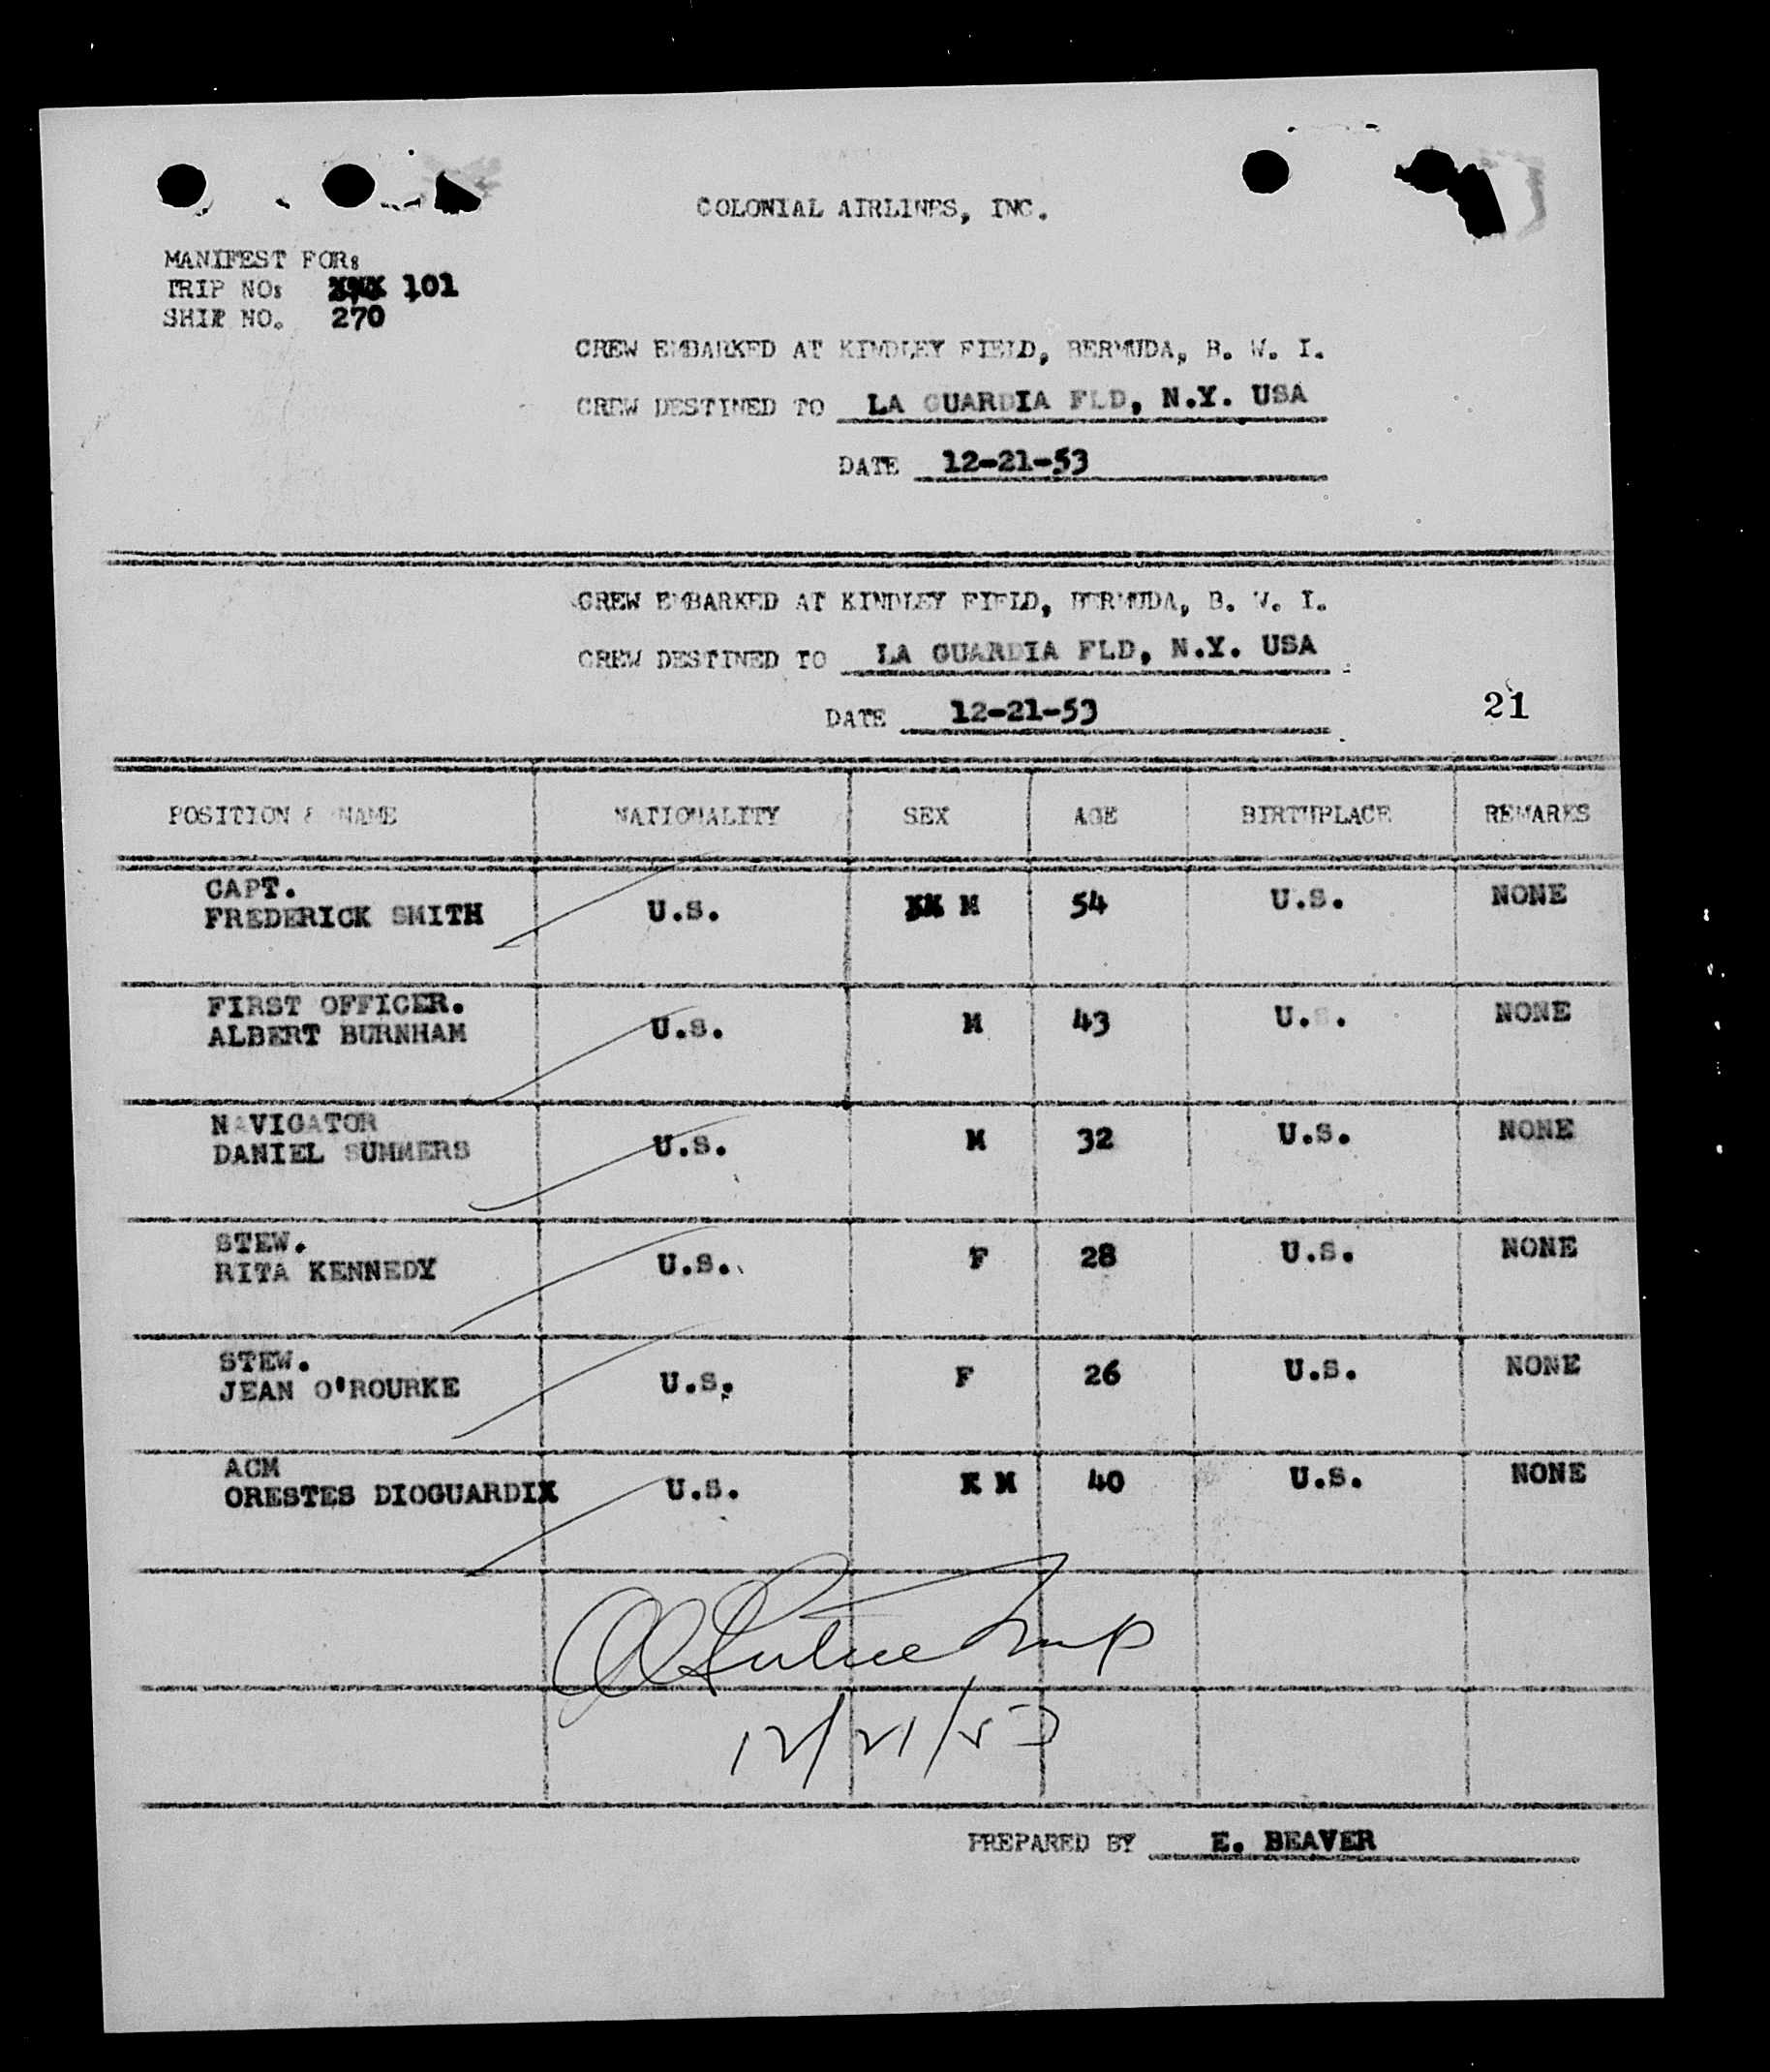 COLONIAL AIRLINES, INC.
MANIFEST FOR:
TRIP NO: 101
SHIP NO. 270
CREW EMBARKED AT KINDLEY FIELD, BERMUDA, B. W. I.
CREW DESTINED TO LA GUARDIA FLD, N.Y. USA
DATE 12-21-53
CREW EMBARKED AT KINDLEY FIELD, BERMUDA, B. W. I.
CREW DESTINED TO LA GUARDIA FLD, N.Y. USA
DATE 12-21-53
21
POSITION & NAME NATIONALITY SEX AGE BIRTHPLACE REMARKS
CAPT.
FREDERICK SMITH U.S. XX M 54 U.S. NONE
FIRST OFFICER.
ALBERT BURNHAM U.S. M 43 U.S. NONE
NAVIGATOR
DANIEL SUMMERS U.S. M 32 U.S. NONE
STEW.
RITA KENNEDY U.S. F 28 U.S. NONE
STEW.
JEAN O'ROURKE U.S. F 26 U.S. NONE
ACM
ORESTES DIOGUARDIX U.S. X M 40 U.S. NONE
12/21/53
PREPARED BY E. BEAVER